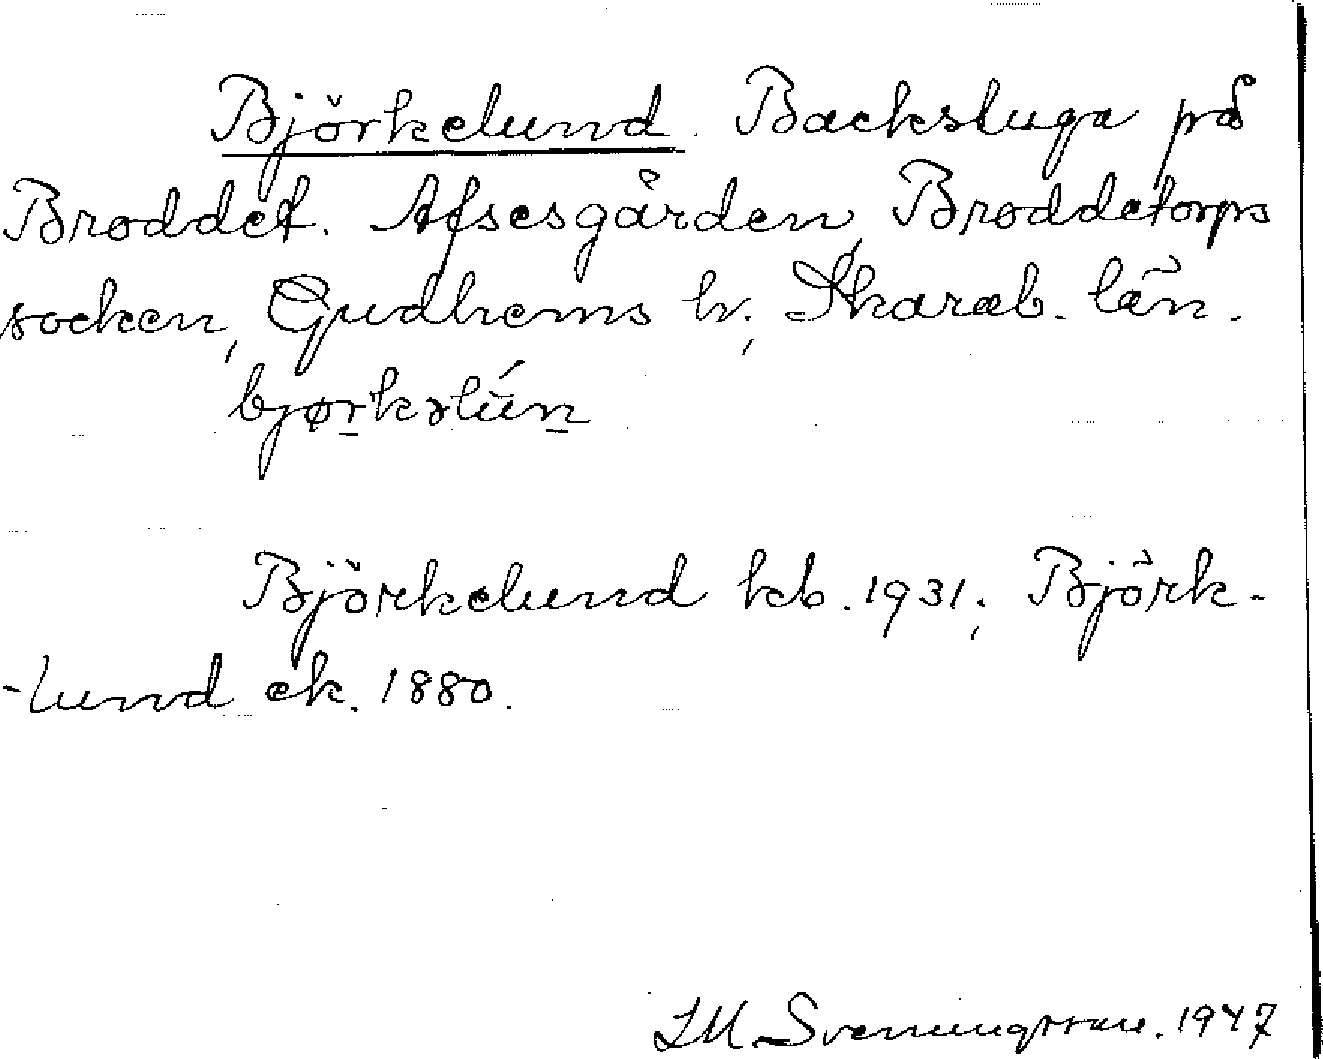 Björkelund. Backstuga på
Broddet. Afsesgården, Broddetorps
socken, Gudhems hr, Skarab. län.
bjørkəlún

Björkelund kb. 1931; Björk-
-lund ek. 1880.
Sveningsson. 1947